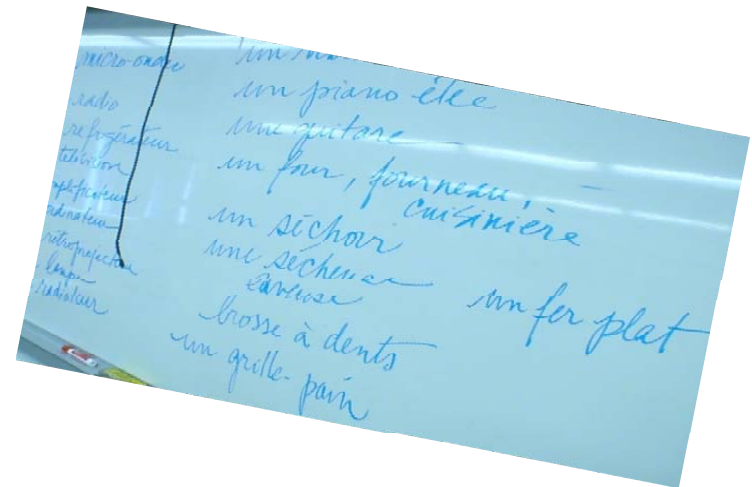 micro-onde
radio
refrigérateur
télévision
amplificateur
ordinateur
rétroprojecteur
lampe
radiateur
un
un piano élec
une guitare
un four, fourneau,
cuisinière
un séchoir
une sécheuse
laveuse
un fer plat
brosse à dents
un grille-pain